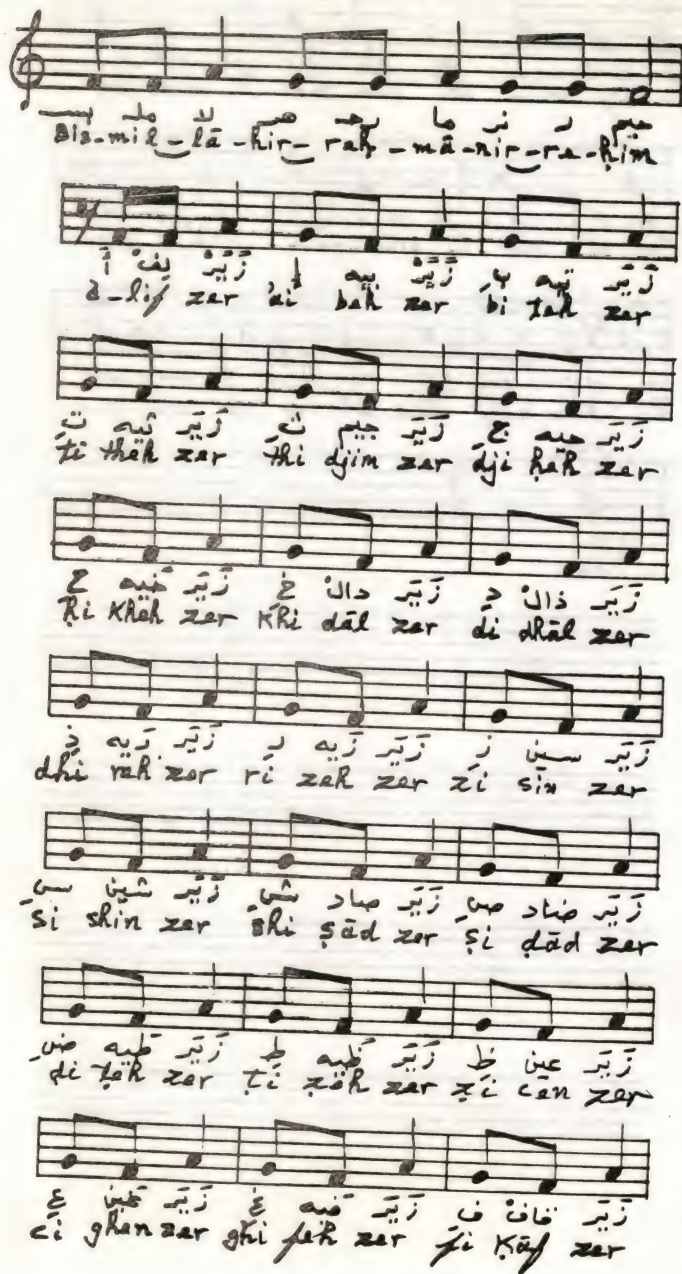 بسـ مل لا هر رحـ ما نر ر حيم
Bis-mil-lā-hir-reh-mā-nir-re-ḥim
أَ لِفْ زَيَرْ إ بيه زَيَرْ بِ تيه زَيَر
a-lif zer 'i beh zer bi teh zer
تِ ثيه زَيَر ثِ جيم زَيَر جِ حيه زَيَر
ti theh zer thi djim zer dji ḥeh zer
حِ خيه زَيَر خِ دالْ زَيَر دِ ذالْ زَيَر
ḥi kheh zer khi dāl zer di dhāl zer
ذِ رَيه زَيَر رِ زَيه زَيَر زِ سين زَيَر
dhi reh zer ri zeh zer zi sin zer
سِ شين زَيَر شِ صاد زَيَر صِ ضاد زَيَر
si shin zer shi ṣād zer ṣi ḍād zer
ضِ طيه زَيَر طِ ظيه زَيَر ظِ عين زَيَر
ḍi ṭeh zer ṭi ẓeh zer ẓi cen zer
عِ غين زَيَر غِ فيه زَيَر فِ قافْ زَيَر
ci ghen zer ghi feh zer fi ḳāf zer